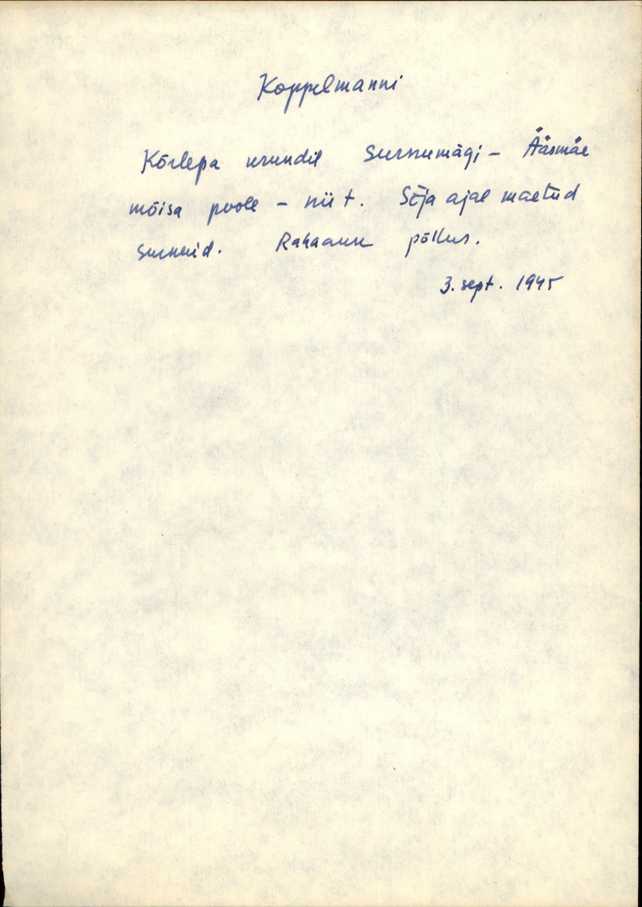 Koppelmanni
Kõrlepa krundil Surnumägi – Ääsmäe
mõisa poole – niit. Sõja ajal maetud
surnuid. Rahaauk põllus.
3. sept. 1945